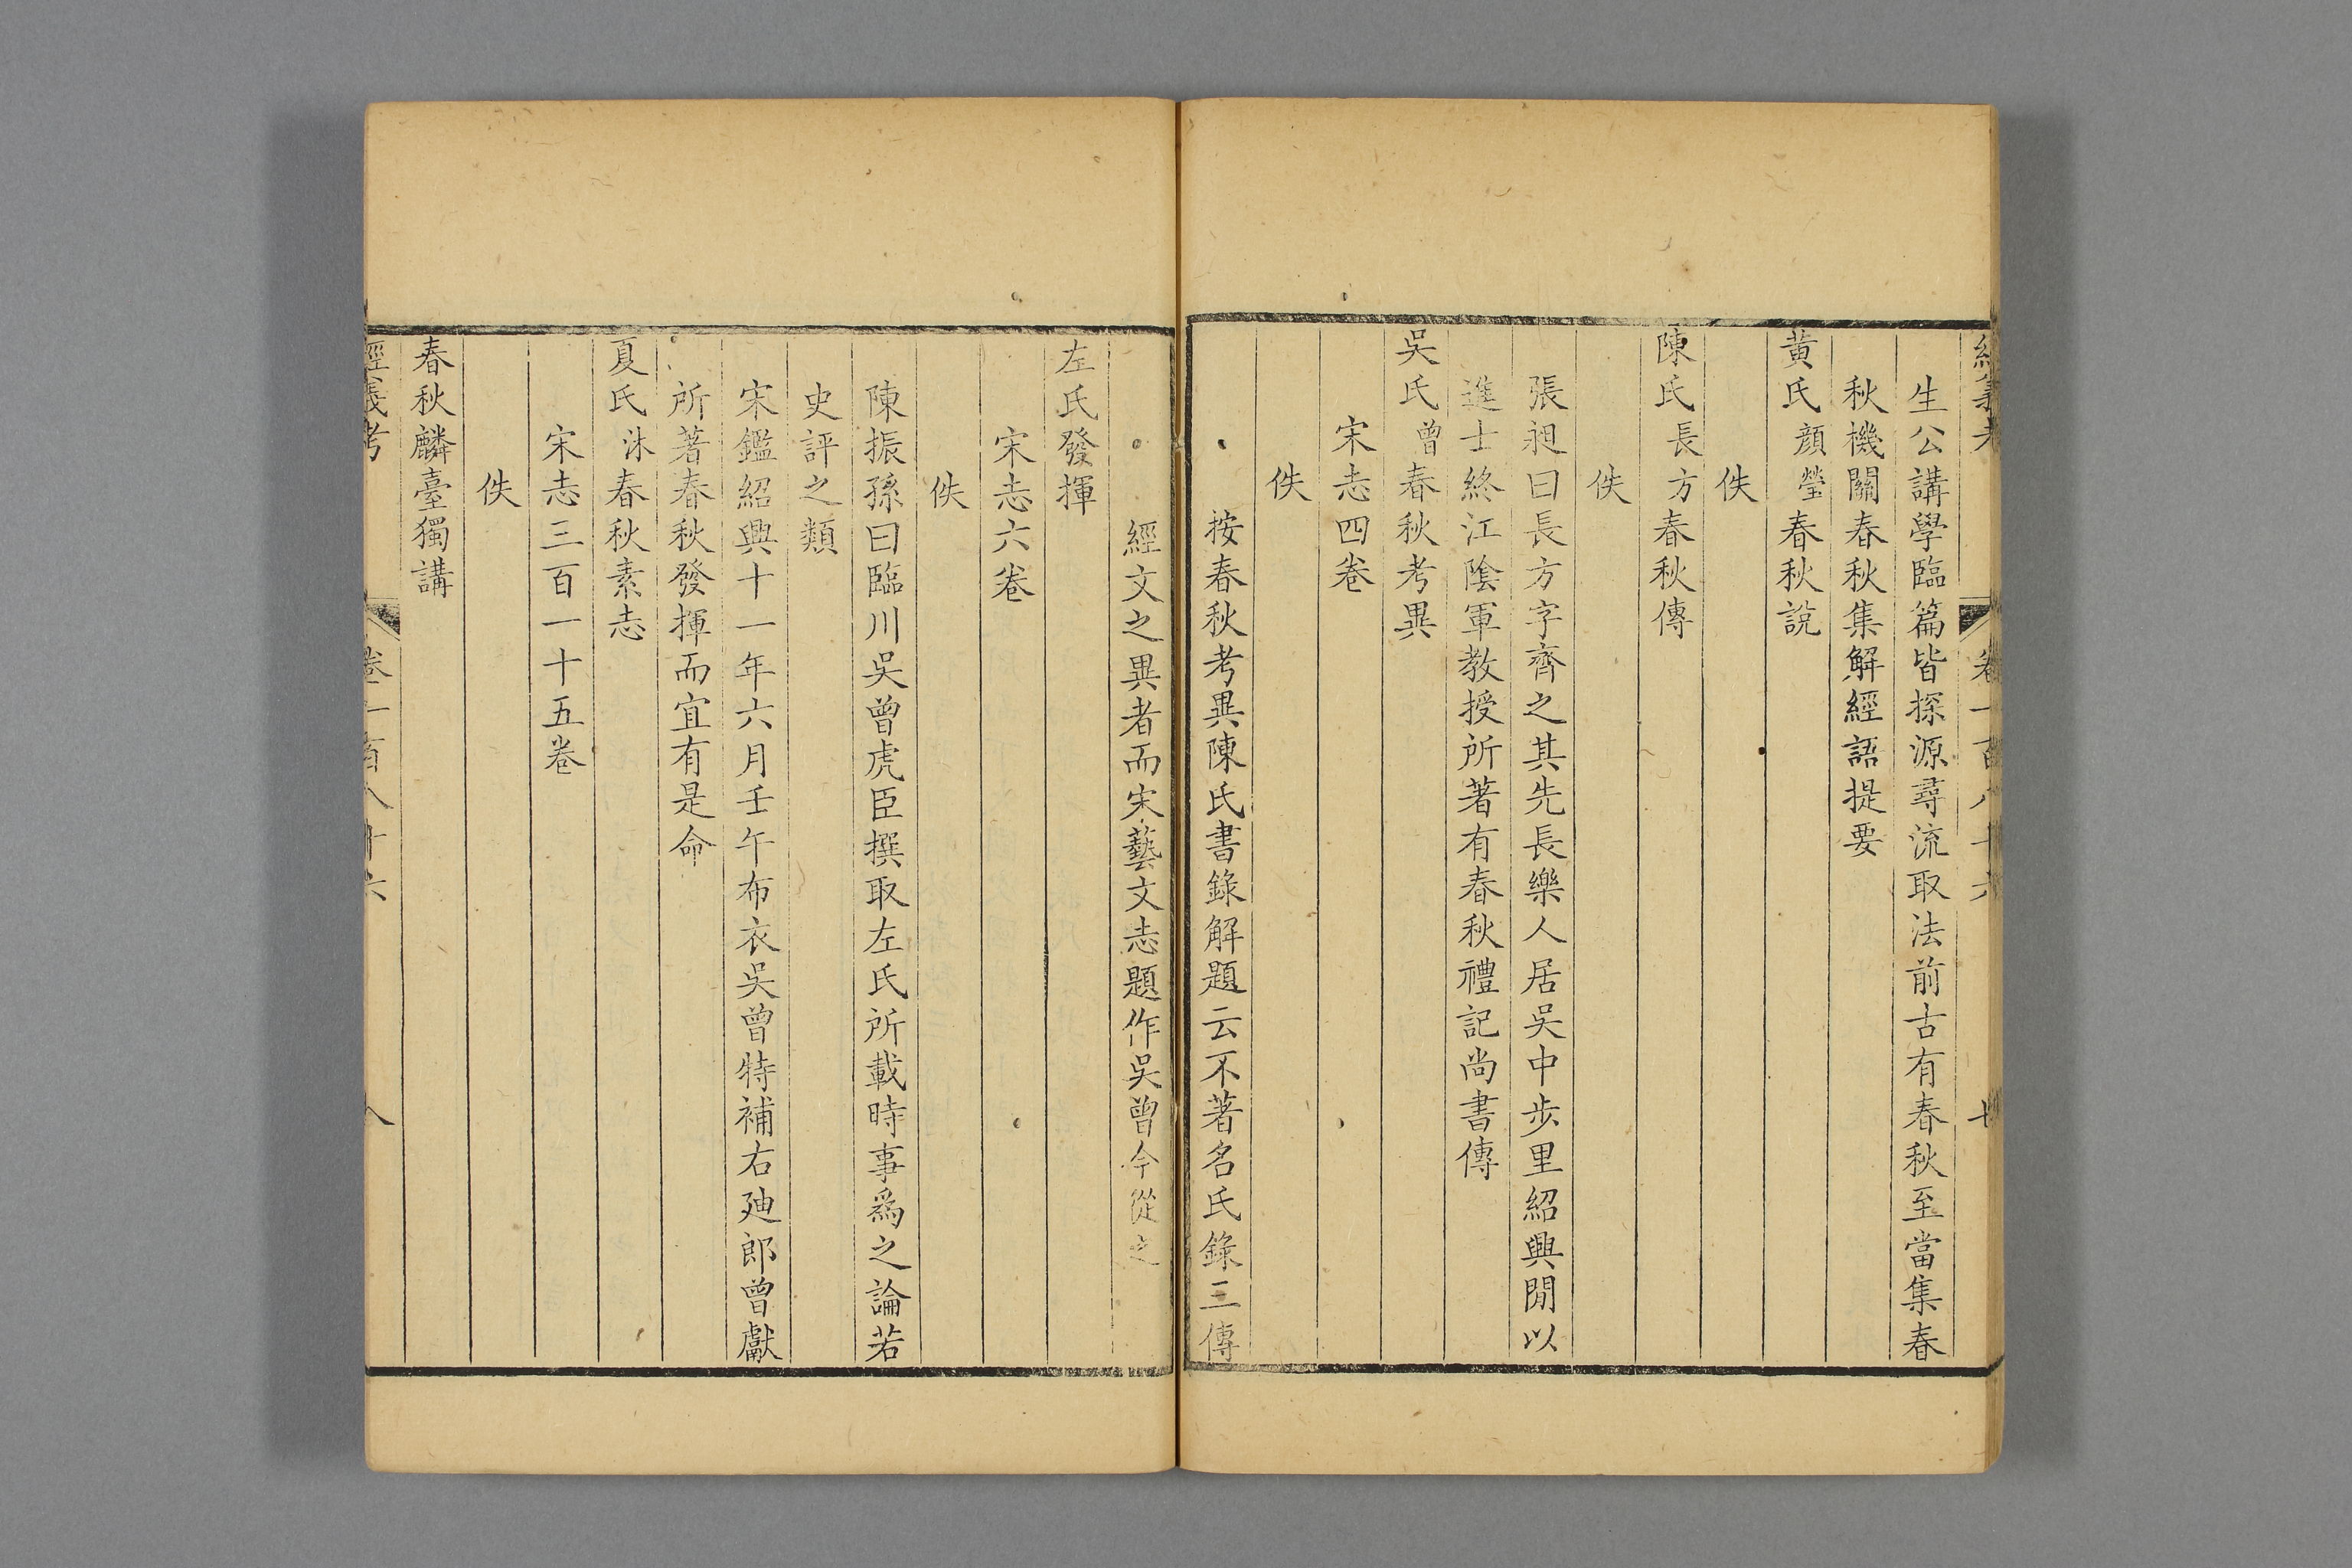 經義考 卷一百八十六 七
生公講學臨篇皆探源尋流取法前古有春秋至當集春
秋機關春秋集解解經語提要
黃氏顔瑩春秋說
佚
陳氏長方春秋傳
佚
張昶曰長方字齊之其先長樂人居吳中步里紹興閒以
進士終江陰軍教授所著有春秋禮記尚書傳
吳氏曾春秋考異
宋志四卷
佚
按春秋考異陳氏書錄解題云不著名氏錄三傳
經文之異者而宋藝文志題作吳曾今從之
左氏發揮
宋志六卷
佚
陳振孫曰臨川吳曾虎臣撰取左氏所載時事爲之論若
史評之類
宋鑑紹興十一年六月壬午布衣吳曾特補右廸郎曾獻
所著春秋發揮而宜有是命
夏氏沐春秋素志
宋志三百一十五卷
佚
春秋麟臺獨講
經義考 卷一百八十六 八